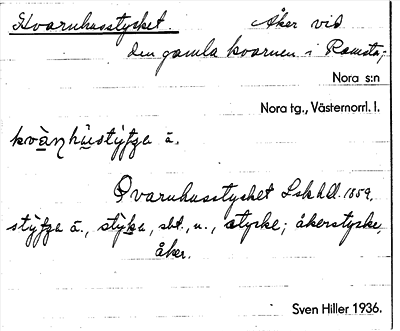 Kvarnhusstycket. Åker vid
den gamla kvarnen i Ramsta,-
Nora s:n
Nora tg., Västernorrl. l.
ä.
Qvarnhusstycket Lskhdl. 1859,
ä., sbt., n., stycke; åkerstycke,
åker.
Sven Hiller 1936.